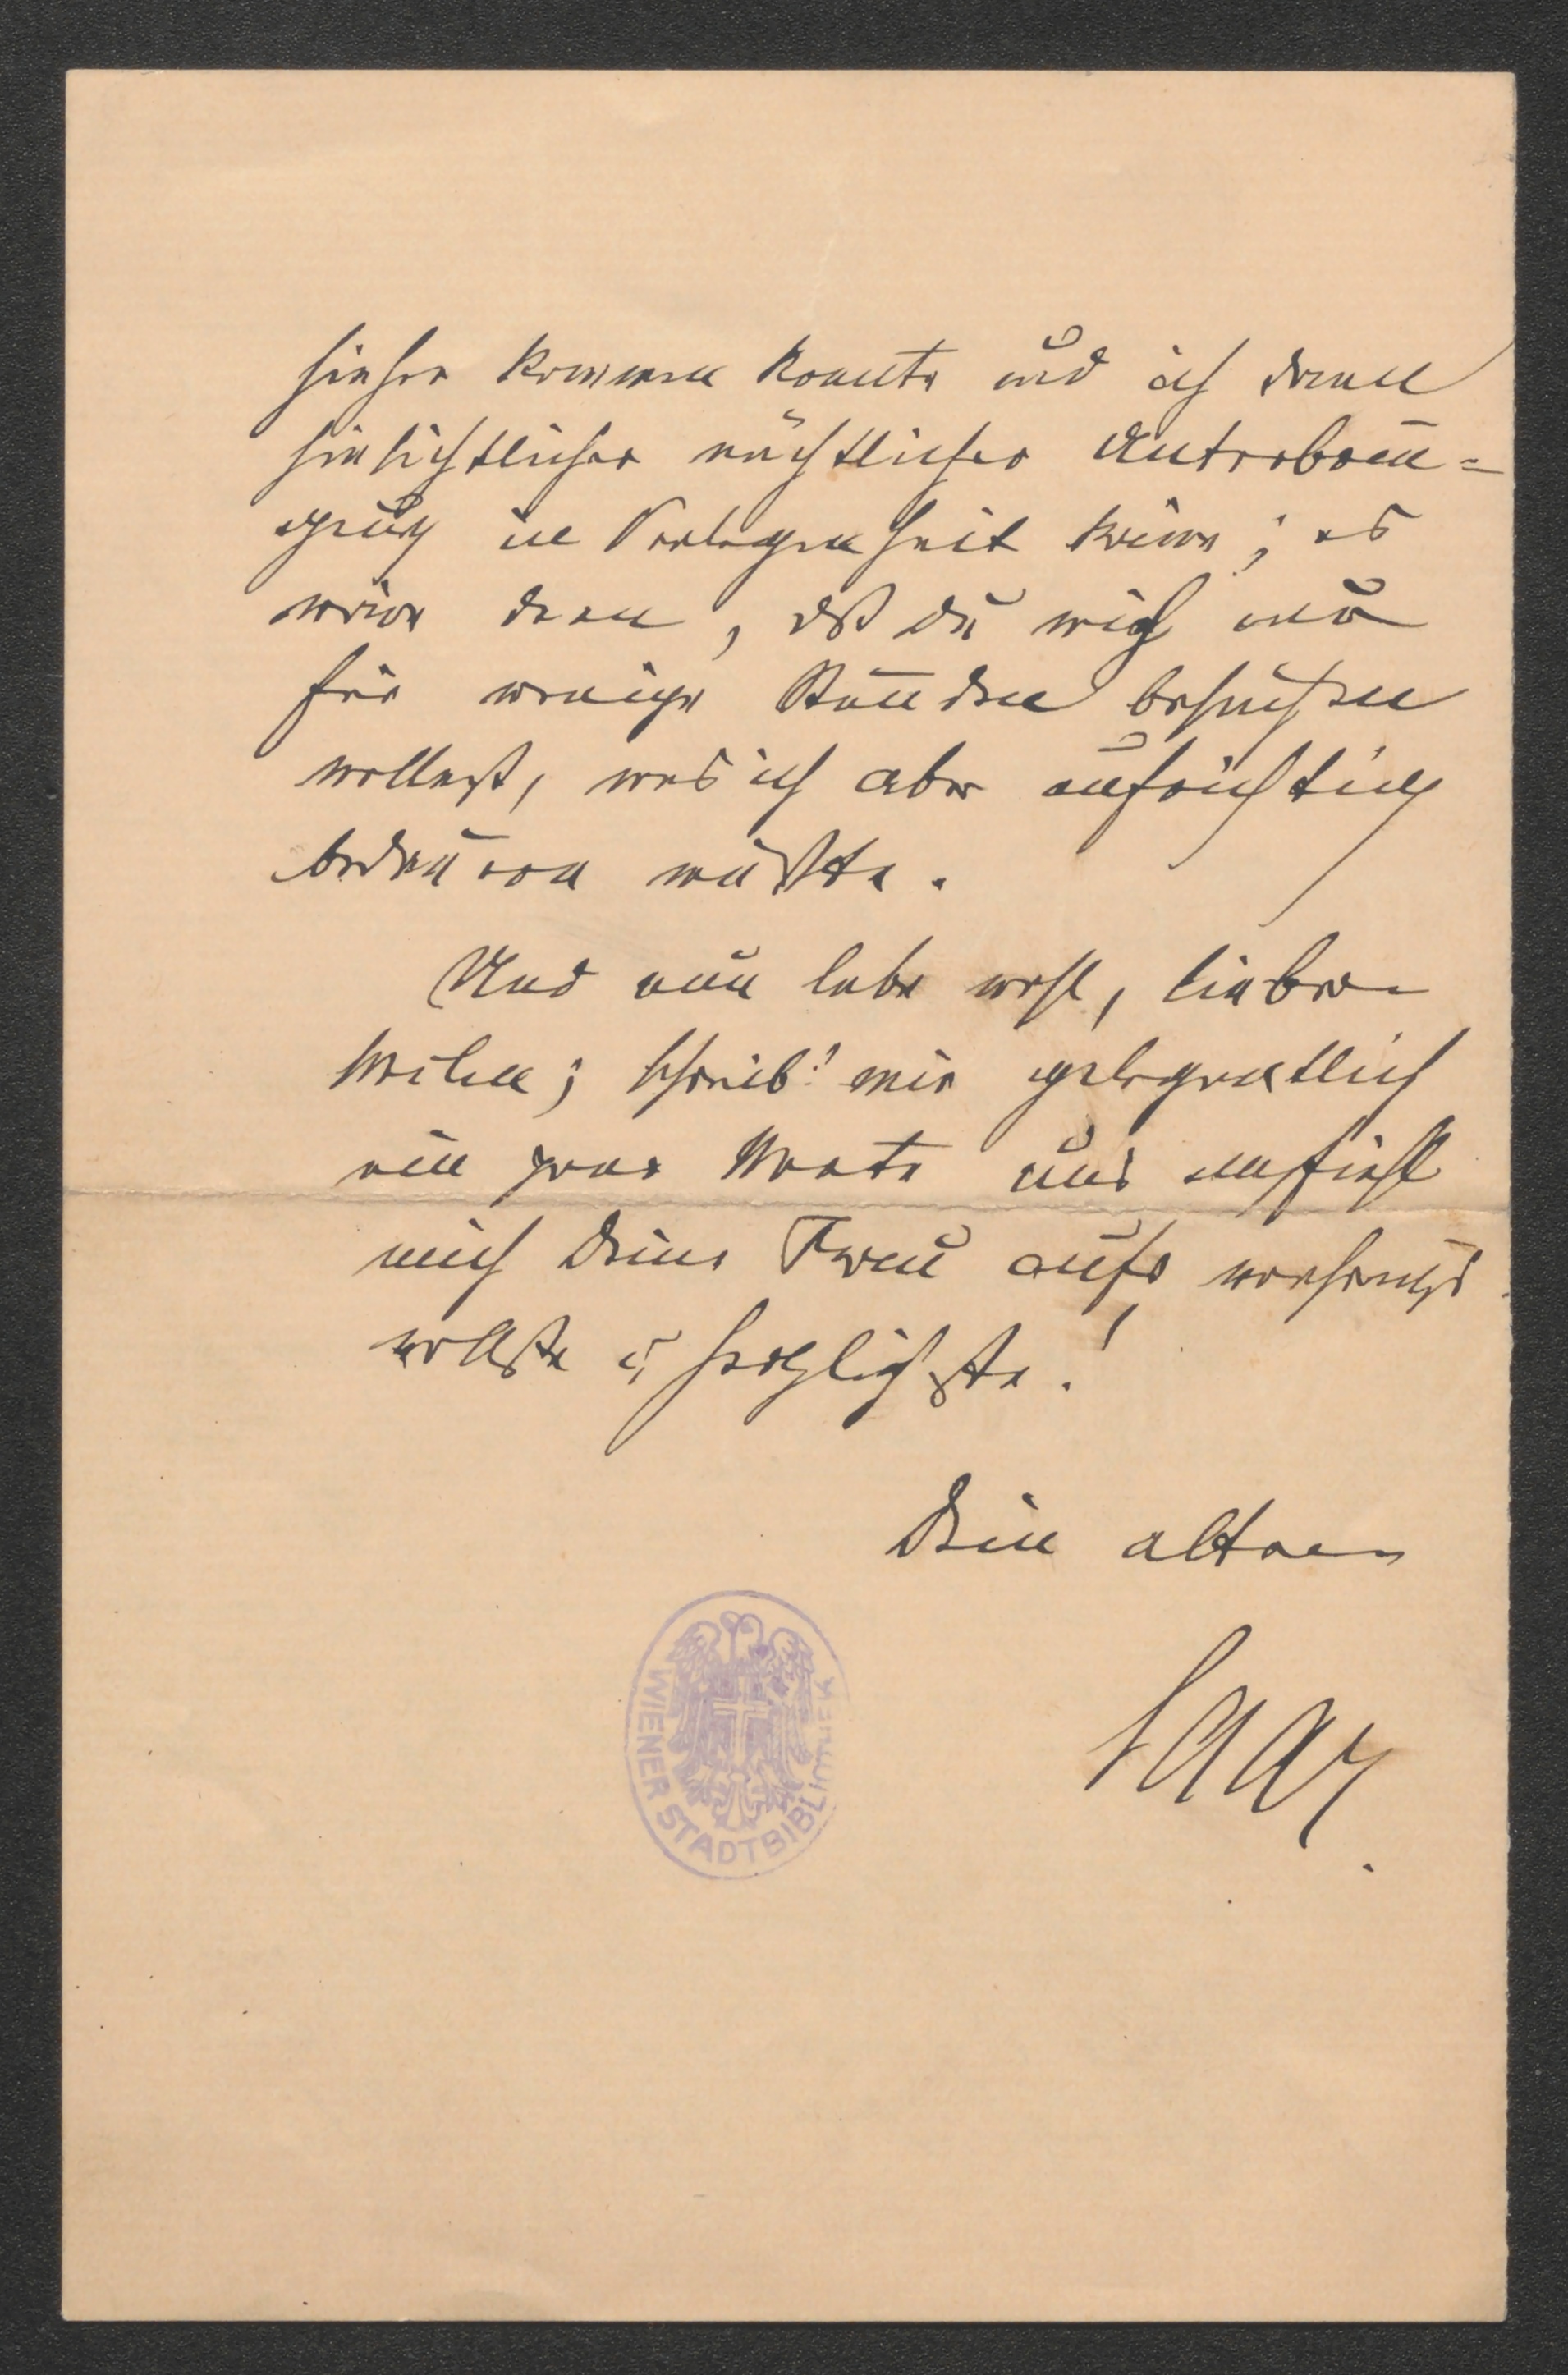 hieher kommen konnte und ich dann
hinsichtlicher nächtlicher Unterbrin=
gung in Verlegenheit käme; es
wäre denn, dß du mich nur
für wenige Stunden besuchen
wollest, was ich aber aufrichtig
bedauern müßte.
Und nun lebe wohl, lieber
Milan; schreib' mir gelegentlich
ein paar Worte und empfiehl
mich Deiner Frau aufs verehrungs
vollste u herzlichste!
Dein alter
Saar.
WIENER STADTBIBLIOTHEK